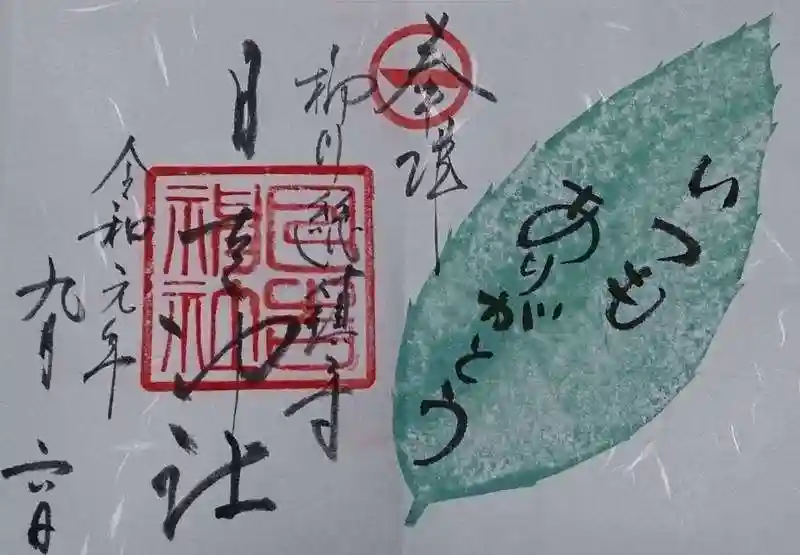 いつも
ありがとう
奉拝
柳川総鎮守
日吉神社
日吉神社
令和元年
九月 六日